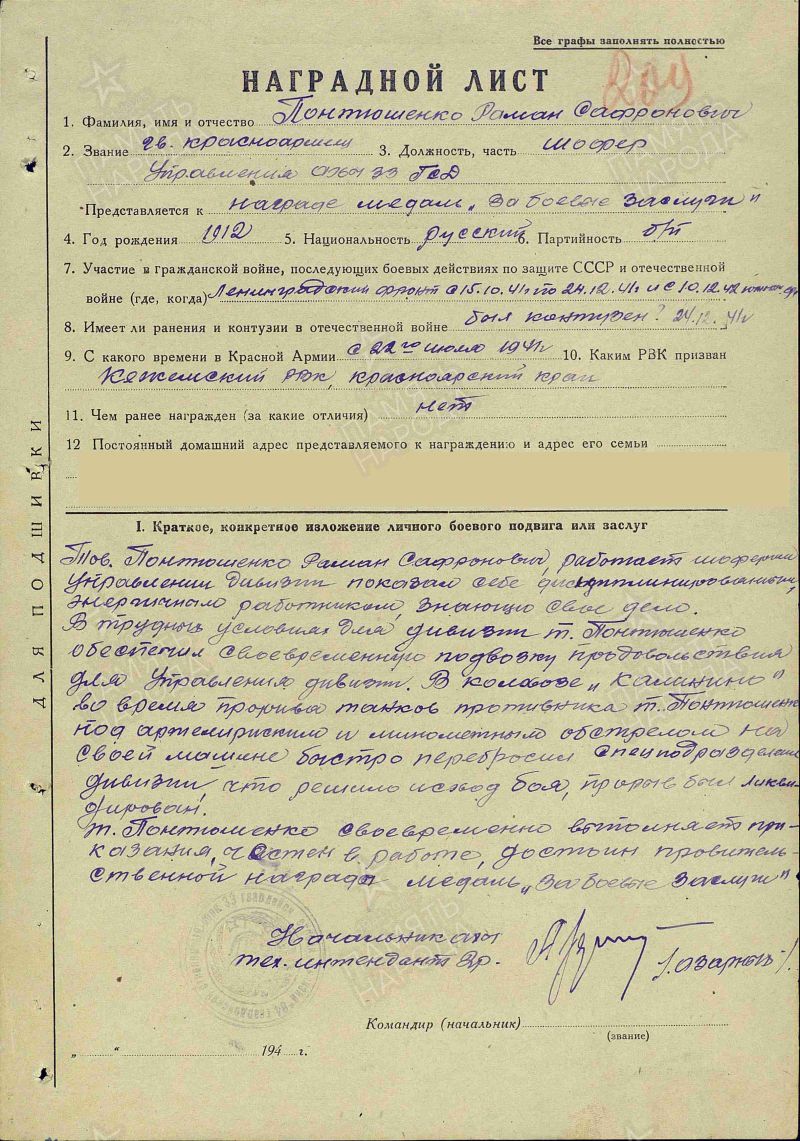 Все графы заполнять полностью
НАГРАДНОЙ ЛИСТ
1. Фамилия, имя и отчество Понтюшенко Раман Сафронович
2. Звание гв. красноармеец 3. Должность, часть шофер
Управления 33 ГСД
Представляется к награде медаль „За боевые заслуги"
4. Год рождения 1912 5. Национальность русский 6. Партийность б/п
7. Участие в гражданской войне, последующих боевых действиях по защите СССР и отечественной
войне (где, когда) Ленинградский фронт с 15.10.41г по 24.12.41г и с 10.12.42
8. Имеет ли ранения и контузии в отечественной войне был контужен 24.12.41г
9. С какого времени в Красной Армии с 22го июля 1941г 10. Каким РВК призван
Кежемский РВК, Красноярский край
11. Чем ранее награжден (за какие отличия) нет
12 Постоянный домашний адрес представляемого к награждению и адрес его семьи
I. Краткое, конкретное изложение личного боевого подвига или заслуг
Тов. Понтюшенко Раман Сафронович, работает шофером
Управлении дивизии показал себе дисциплинированным,
энергичным работником, знающий свое дело.
В трудных условиях для дивизии т. Понтюшенко
обеспечил своевременную подвозку продовольствия
для Управления дивизии. В колхозе „Калинино"
во время прорыва танков противника т. Понтюшенко
под артелириским и минометным обстрелом на
своей машине быстро перебросил спецподразделения
дивизии, что решило исход боя, прорыв был ликви-
дирован.
т. Понтюшенко своевременно выполняет при-
казания, честен в работе, достоин правитель-
ственной награды медаль „За Боевые Заслуги"
Начальник
тех. интендант 2р.
Командир (начальник)
(звание)
„ “ 194 г.
ДЛЯ ПОДШИВКИ
ПАМЯТЬ НАРОДА